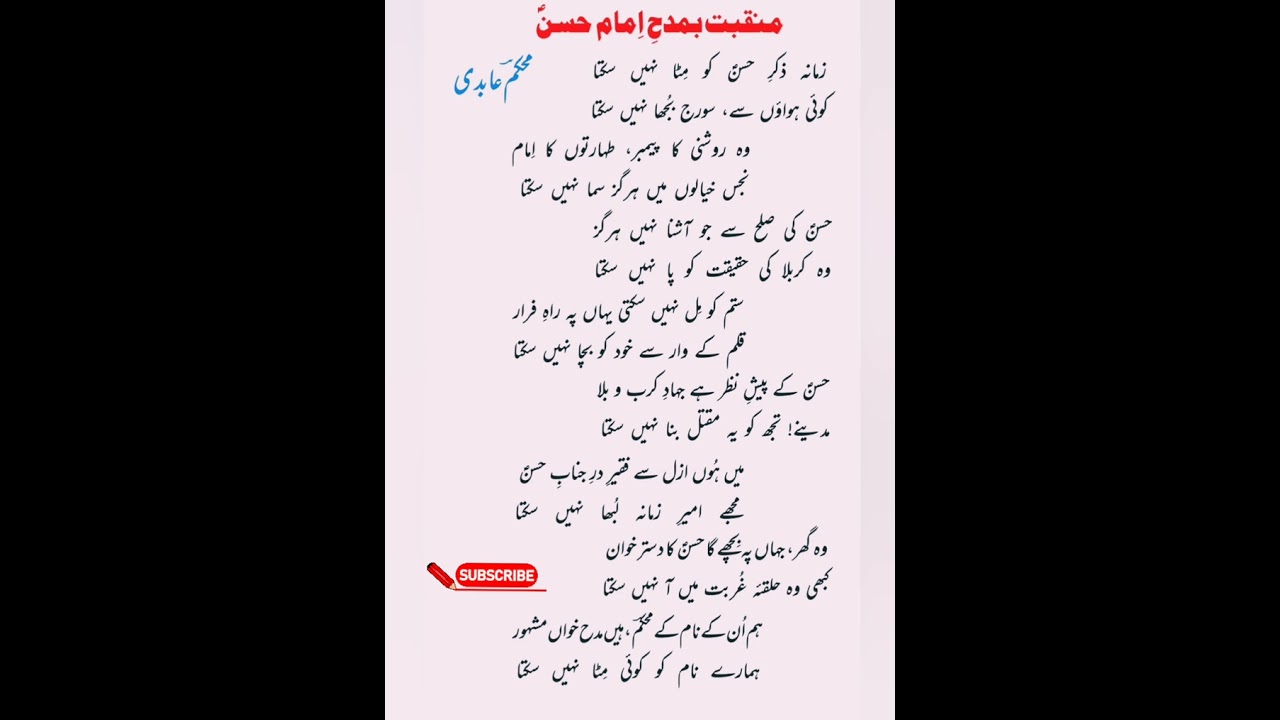 منقبت بمدحِ اِمام حسنؑ
محکمؔ عابدی
زمانہ ذکرِ حسنؑ کو مِٹا نہیں سکتا
کوئی ہواؤں سے، سورج بُجھا نہیں سکتا
وہ روشنی کا پیمبر، طہارتوں کا اِمام
نجس خیالوں میں ہرگز سما نہیں سکتا
حسنؑ کی صلح سے جو آشنا نہیں ہرگز
وہ کربلا کی حقیقت کو پا نہیں سکتا
ستم کو مِل نہیں سکتی یہاں پہ راہِ فرار
قلم کے وار سے خود کو بچا نہیں سکتا
حسنؑ کے پیشِ نظر ہے جہادِ کرب و بلا
مدینے! تجھ کو یہ مقتل بنا نہیں سکتا
میں ہُوں ازل سے فقیرِ درِ جنابِ حسنؑ
مجھے امیرِ زمانہ لُبھا نہیں سکتا
وہ گھر، جہاں پہ بِچھے گا حسنؑ کا دسترخوان
کبھی وہ حلقۂ غُربت میں آ نہیں سکتا
SUBSCRIBE
ہم اُن کے نام کے محکمؔ، ہیں مدح خواں مشہور
ہمارے نام کو کوئی مِٹا نہیں سکتا